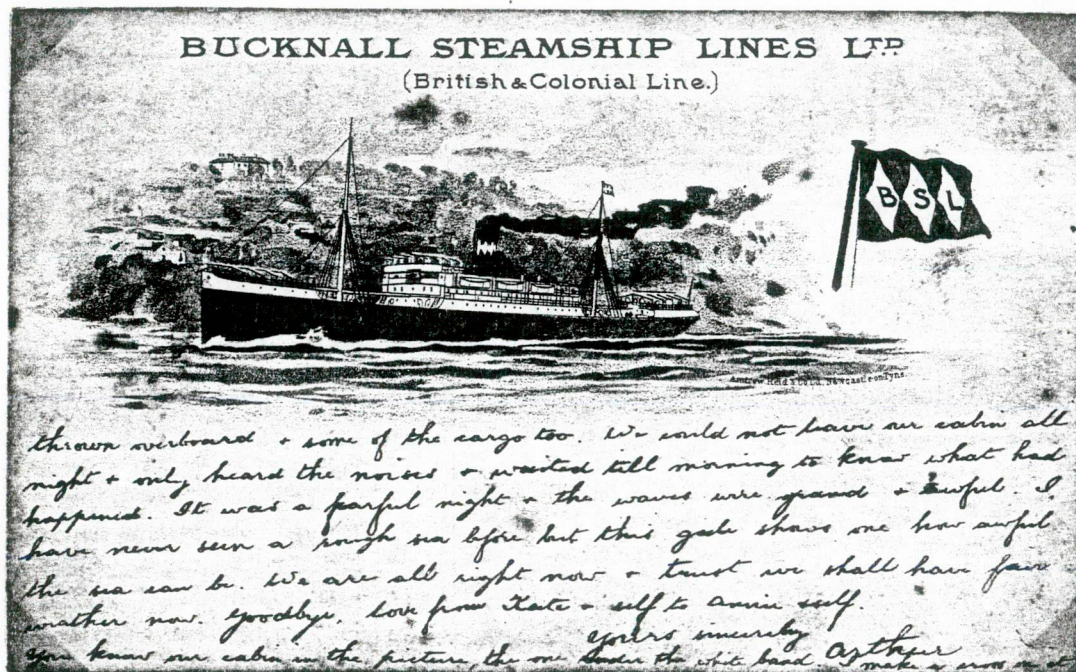 BUCKNALL STEAMSHIP LINES LTD
(British & Colonial Line.)
BSL
Andrew Reid & Co Ld. Newcastle on Tyne.
thrown overboard + some of the cargo too. We could not leave our cabin all
night + only heard the noises + waited till morning to know what had
happened. It was a fearful night + the waves were grand + awful. I
have never seen a rough sea before but this gale shows one how awful
the sea can be. We are all right now + trust we shall have fair
weather now. Goodbye, love from Kate + self to Annie self.
Yours sincerely
Arthur
You know our cabin in the picture, the one under the white